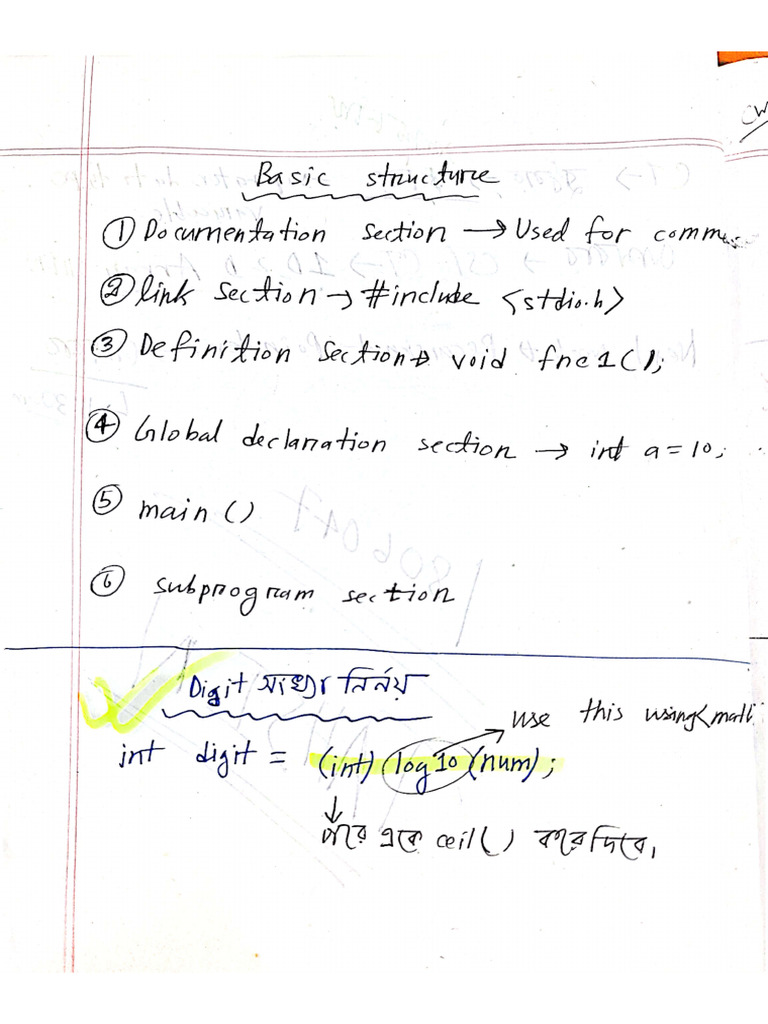 CW
Basic structure
① Documentation section → Used for comme
② link section → #include <stdio.h>
③ Definition section → void fnc1();
④ Global declaration section → int a = 10;
⑤ main()
⑥ subprogram section
Digit সংখ্যা নির্নয়
use this using <math
int digit = (int) (log10)(num);
↓
পরে একে ceil() করে দিবে।